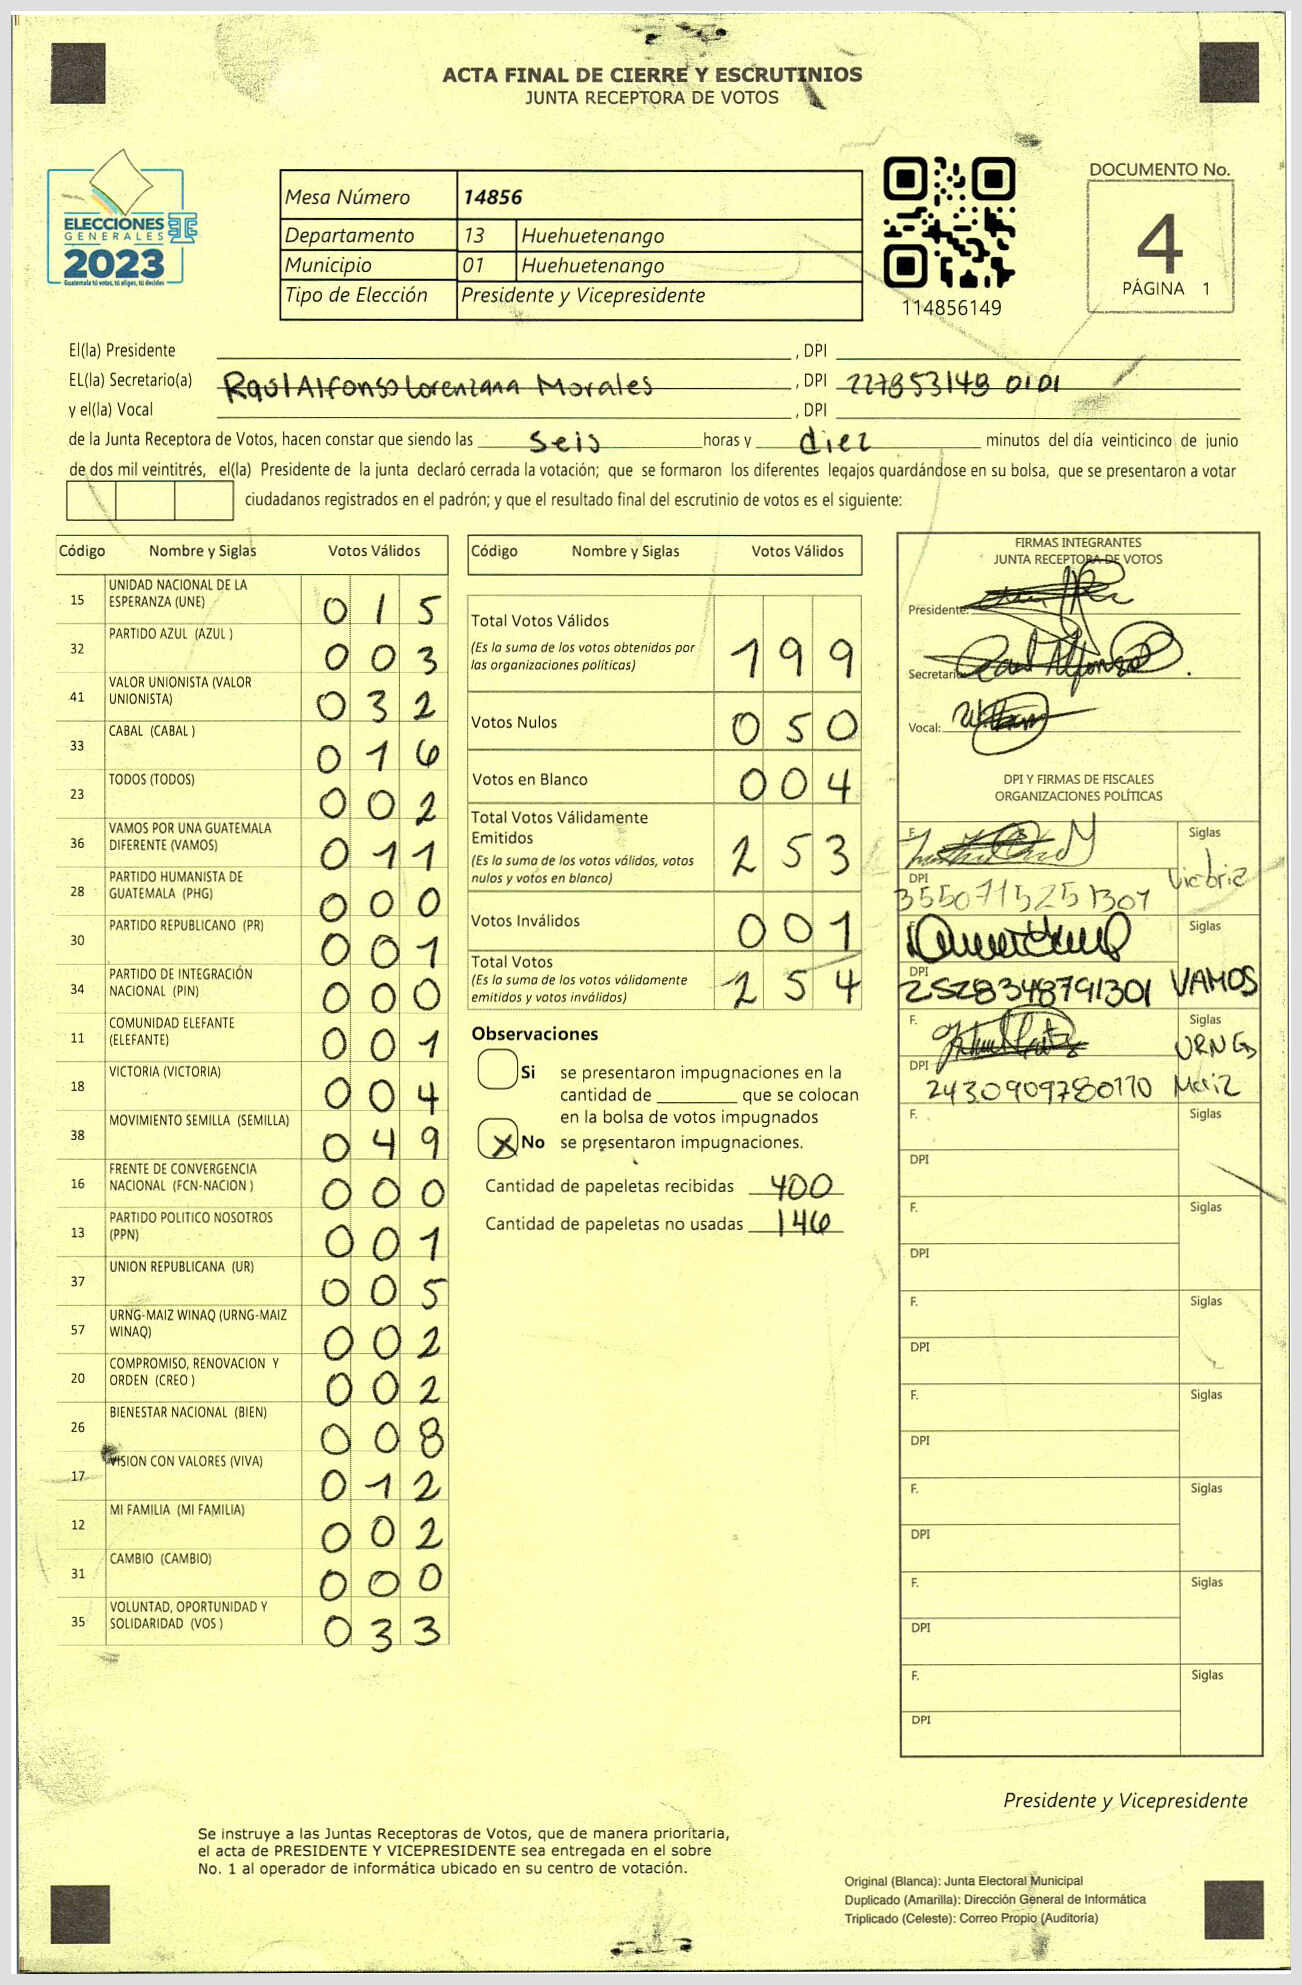 ACTA FINAL DE CIERRE Y ESCRUTINIOS
JUNTA RECEPTORA DE VOTOS
ELECCIONES
GENERALES
2023
Guatemala tú votas, tú eliges, tú decides
Mesa Número 14856
Departamento 13 Huehuetenango
Municipio 01 Huehuetenango
Tipo de Elección Presidente y Vicepresidente
114856149
DOCUMENTO No.
4
PÁGINA 1
El(la) Presidente , DPI
EL(la) Secretario(a) Raul Alfonso Lorenzana Morales , DPI 227853149 0101
y el(la) Vocal , DPI
de la Junta Receptora de Votos, hacen constar que siendo las seis horas y diez minutos del día veinticinco de junio
de dos mil veintitrés, el(la) Presidente de la junta declaró cerrada la votación; que se formaron los diferentes legajos guardándose en su bolsa, que se presentaron a votar
ciudadanos registrados en el padrón; y que el resultado final del escrutinio de votos es el siguiente:
Código Nombre y Siglas Votos Válidos
15 UNIDAD NACIONAL DE LA ESPERANZA (UNE) 015
32 PARTIDO AZUL (AZUL ) 003
41 VALOR UNIONISTA (VALOR UNIONISTA) 032
33 CABAL (CABAL ) 016
23 TODOS (TODOS) 002
36 VAMOS POR UNA GUATEMALA DIFERENTE (VAMOS) 011
28 PARTIDO HUMANISTA DE GUATEMALA (PHG) 000
30 PARTIDO REPUBLICANO (PR) 001
34 PARTIDO DE INTEGRACIÓN NACIONAL (PIN) 000
11 COMUNIDAD ELEFANTE (ELEFANTE) 001
18 VICTORIA (VICTORIA) 004
38 MOVIMIENTO SEMILLA (SEMILLA) 049
16 FRENTE DE CONVERGENCIA NACIONAL (FCN-NACION ) 000
13 PARTIDO POLITICO NOSOTROS (PPN) 001
37 UNION REPUBLICANA (UR) 005
57 URNG-MAIZ WINAQ (URNG-MAIZ WINAQ) 002
20 COMPROMISO, RENOVACION Y ORDEN (CREO ) 002
26 BIENESTAR NACIONAL (BIEN) 008
17 VISION CON VALORES (VIVA) 012
12 MI FAMILIA (MI FAMILIA) 002
31 CAMBIO (CAMBIO) 000
35 VOLUNTAD, OPORTUNIDAD Y SOLIDARIDAD (VOS ) 033
Código Nombre y Siglas Votos Válidos
Total Votos Válidos 199
(Es la suma de los votos obtenidos por
las organizaciones políticas)
Votos Nulos 050
Votos en Blanco 004
Total Votos Válidamente
Emitidos 253
(Es la suma de los votos válidos, votos
nulos y votos en blanco)
Votos Inválidos 001
Total Votos 254
(Es la suma de los votos válidamente
emitidos y votos inválidos)
Observaciones
Si se presentaron impugnaciones en la
cantidad de ________ que se colocan
en la bolsa de votos impugnados
X No se presentaron impugnaciones.
Cantidad de papeletas recibidas 400
Cantidad de papeletas no usadas 146
FIRMAS INTEGRANTES
JUNTA RECEPTORA DE VOTOS
Presidente:
Secretario: Raul Alfonso
Vocal:
DPI Y FIRMAS DE FISCALES
ORGANIZACIONES POLÍTICAS
F. Siglas
Victoria
DPI 3550715251307
F. Siglas
DPI
2528348791301 VAMOS
F. Siglas
URNG
DPI
2430909780110 Maiz
F. Siglas
DPI
F. Siglas
DPI
F. Siglas
DPI
F. Siglas
DPI
F. Siglas
DPI
F. Siglas
DPI
F. Siglas
DPI
Presidente y Vicepresidente
Se instruye a las Juntas Receptoras de Votos, que de manera prioritaria,
el acta de PRESIDENTE Y VICEPRESIDENTE sea entregada en el sobre
No. 1 al operador de informática ubicado en su centro de votación.
Original (Blanca): Junta Electoral Municipal
Duplicado (Amarilla): Dirección General de Informática
Triplicado (Celeste): Correo Propio (Auditoría)